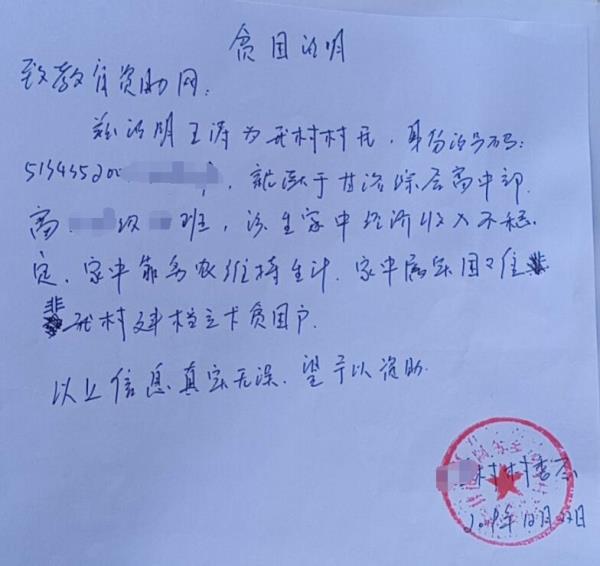 贫困证明
致教育资助网:
兹证明王涛为我村村民,身份证号码:
51343520,就读于甘洛综合高中部
高 级 班,该生家中经济收入不稳
定,家中靠务农维持生计,家中属实困难,
非我村建档立卡贫困户.
以上信息真实无误,望予以资助.
村村委会
2019年12月 日